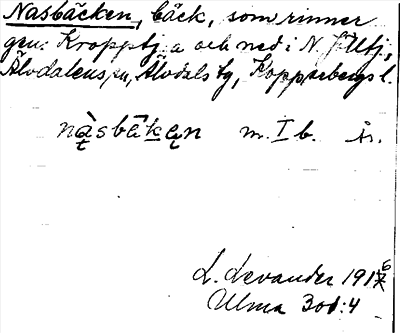 Nasbäcken, bäck, som rinner
gm. Kropptj:a och ned i N. Fjätj,
Älvdalens sn, Älvdals tg, Kopparbergs l.
nạ̀sbäkən m. I b. är.
L. Levander 1916
Ulma 301:4